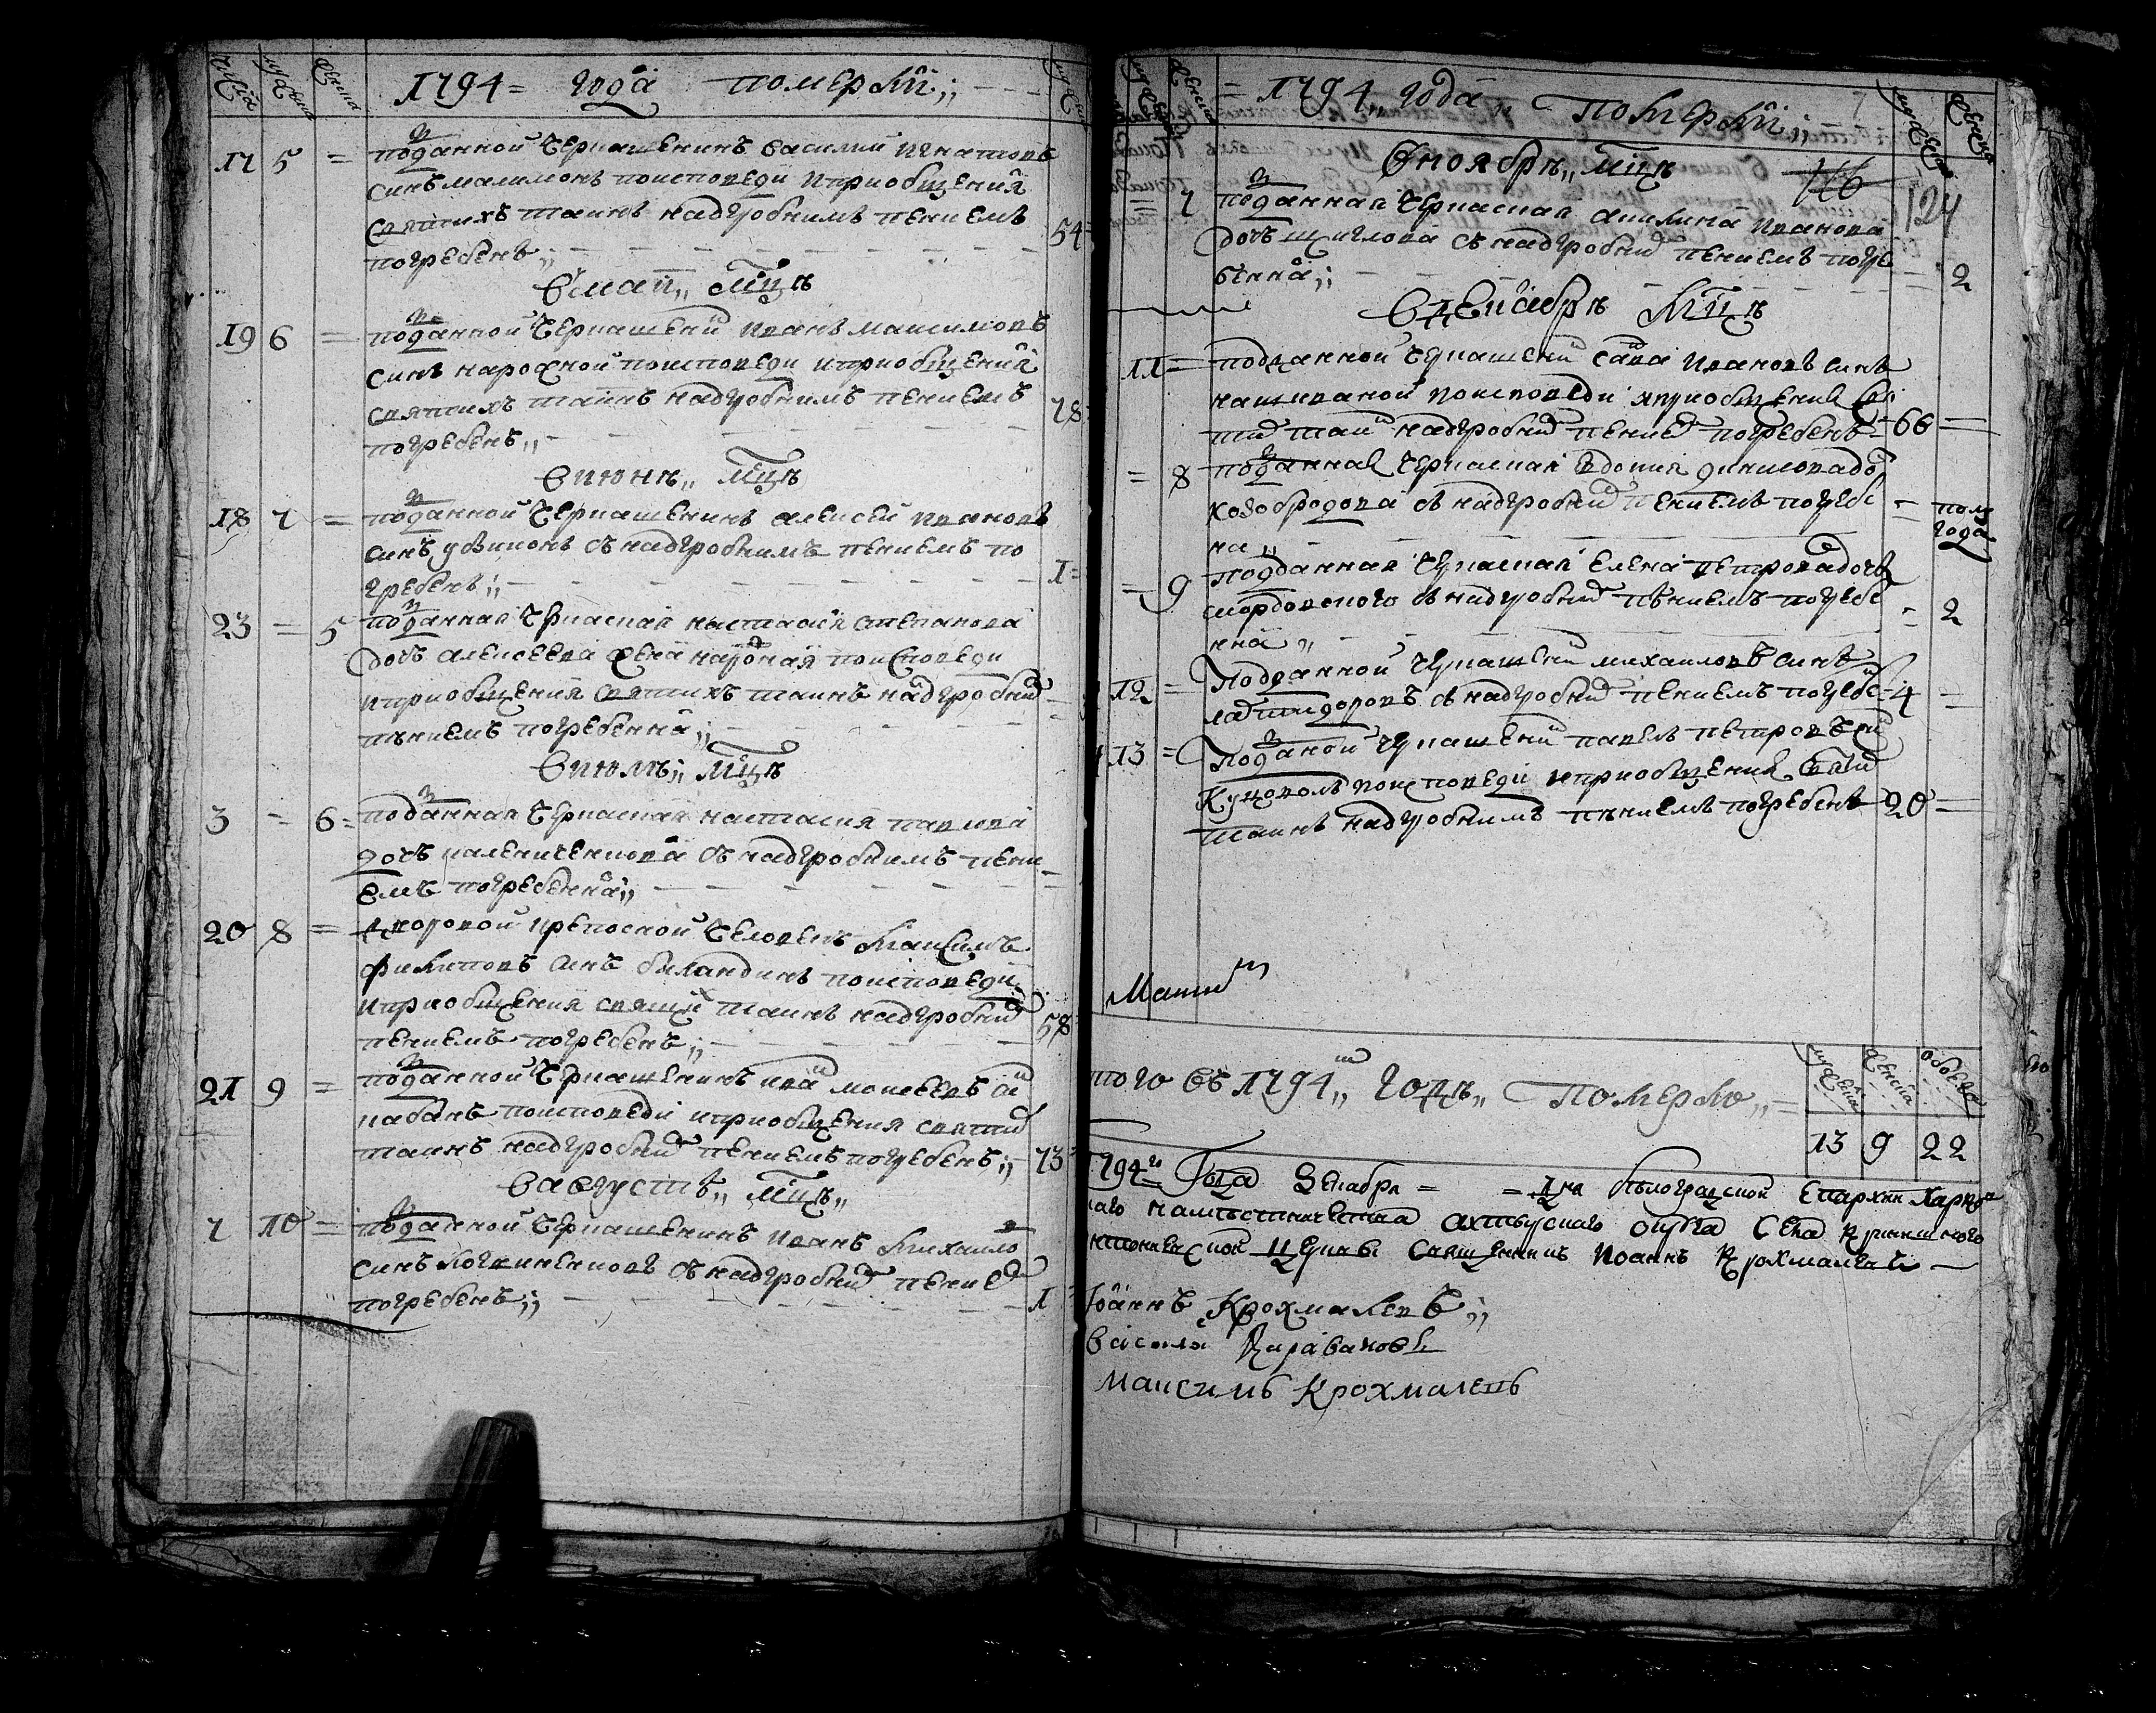 числа мужеска женска 1794 = года померлїи;;
17 5 = подданной черкашенинъ василий игнатовъ
синъ малимонъ поисповеди иприобщения
святихъ таинъ надгробнимъ пениемъ 54
погребенъ;;
Вмаїи,, мцѣ
19 6 = подданной черкашени иванъ максимовъ
синъ нарожной поисповеди иприобщения
святихъ таинъ надгробнимъ пениемъ 78
погребенъ,,
Виюнѣ,, мцѣ
18 7 = подданной черкашенинъ алексей ивановъ
синъ съ надгробнимъ пениемъ по
гребенъ;; 1=
23 = 5 подданная черкаская настасїя степанова
дочъ алексеева жена нарожная поисповеди
иприобщения святихъ таинъ надгробним
пѣниемъ погребенна;;
Виюлѣ;; мцѣ
3 = 6= подданная черкаская настасия павлова
дочъ калениченкова съ надгробнимъ пени
емъ погребенна;;
20 8 = дворовой крепосной человекъ максимъ
филиповъ синъ биландинъ поисповеди
иприобщения святих таинъ надгробним
пениемъ погребенъ;; 58
21 9 = подданной черкашенинъ ива моисеевъ си
кабанъ поисповеди иприобщения святих
таинъ надгробним пениемъ погребенъ;; 73
Вавгустѣ,, мцѣ,,
7 10 = подданной черкашенинъ иванъ михайло
синъ логвиненковъ съ надгробним пение
погребенъ;; 1
= 1794,, года,, померлїи;;
Вноябрѣ,, мцѣ 124
= 7 подданная черкаская акилина иванова
дочъ щиглова съ надгробним пениемъ погре
бенна;; 2
Вдекабрѣ мцѣ
11 = подданной черкашени сава ивановъ синъ
поисповеди иприобщения свя
тих таин надгробним пение погребенъ = 66 =
= 8 подданная черкаская евдокия до
козобродова съ надгробним пениемъ погребе
на,, = полъ года
= 9 подданная черкаская елена петровадочъ
съ надгробним пѣниемъ погребе
нна,, = 2
12 = Подданной черкашени михаиловъ синъ
съ надгробним пениемъ погребе = 4 =
13 = Подданой черкашени павелъ петровъ си
поисповеди иприобщения святих
таинъ надгробнимъ пѣниемъ погребенъ 20 =
мужеска женска обоего
того въ 1794,, годѣ,, померло,, =
13 9 22
1794го Года Декабря = = дня бѣлоградской Епархии Харков
каго намѣстничества ахтырскаго округа села
церкви священникъ Иоаннъ Крохмалевъ
Іоаннъ Крохмалевъ;;
Максимъ Крохмалевъ